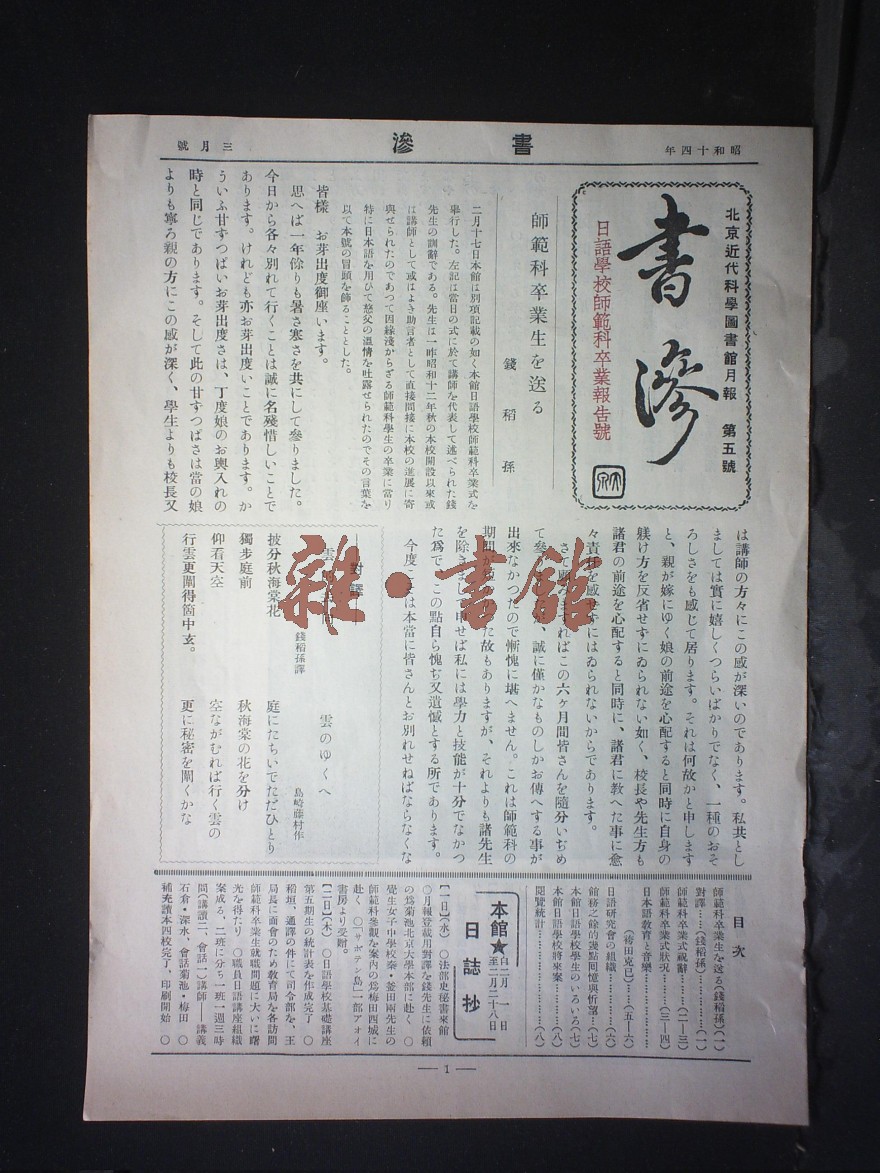 昭和十四年
書滲
三月號
北京近代科學圖書館月報　第五號
書滲
日語學校師範科卒業報告號
師範科卒業生を送る
錢稻孫
二月十七日本館は別項記載の如く本館日語學校師範科卒業式を
舉行した。左記は當日の式に於て講師を代表して述べられた錢
先生の訓辭である。先生は一昨昭和十二年秋の本校開設以來或
は講師として或はよき助言者として直接間接に本校の進展に寄
與せられたのであつて因緣淺からざる師範科學生の卒業に當り
特に日本語を用ひて慈父の溫情を吐露せられたのでその言葉を
以て本號の冒頭を飾ることとした。
皆樣　お芽出度御座います。
思へば一年餘りも暑さ寒さを共にして參りました。
今日から各々別れて行くことは誠に名殘惜しいことで
あります。けれども亦お芽出度いことであります。か
ういふ甘ずつぱいお芽出度さは、丁度娘のお輿入れの
時と同じであります。そして此の甘ずつぱさは當の娘
よりも寧ろ親の方にこの感が深く、學生よりも校長又
は講師の方々にこの感が深いのであります。私共とし
ましては實に嬉しくつらいばかりでなく、一種のおそ
ろしさをも感じて居ります。それは何故かと申します
と、親が嫁にゆく娘の前途を心配すると同時に自身の
躾け方を反省せずにゐられない如く、校長や先生方も
諸君の前途を心配すると同時に、諸君に教へた事に愈
々責任を感ぜずにはゐられないからであります。
さて顧みますればこの六ケ月間皆さんを隨分いぢめ
て參りましたが、誠に僅かなものしかお傳へする事が
出來なかつたので慚愧に堪へません。これは師範科の
期間が短かつた故もありますが、それよりも諸先生
を除きまして申せば私には學力と技能が十分でなかつ
た爲で、この點自ら愧ぢ又遺憾とする所であります。
今度こそは本當に皆さんとお別れせねばならなくな
對譯
雲のゆくへ
島崎藤村作
庭にたちいでただひとり
秋海棠の花を分け
空ながむれば行く雲の
更に秘密を闡くかな
雲
錢稻孫譯
獨步庭前
披分秋海棠花
仰看天空
行雲更闡得箇中玄。
目次
師範科卒業生を送る(錢稻孫)(一)
對譯……(錢稻孫)………(一)
師範科卒業式祝辭………(二—三)
師範科卒業式狀況………(三—四)
日本語教育と音樂
(袴田克巳)…(五—六)
日語研究會の組織………(六)
館務之餘的幾點回憶與忻望…(七)
本館日語學校學生のいろいろ(七)
本館日語學校將來案………(八)
閱覽統計………………(八)
本館★日誌抄
自二月一日
至二月二十八日
【一日】(水)　〇法部史秘書來館
〇月報登載用對譯を錢先生に依賴
の爲菊池北京大學本部に赴く　〇
覺生女子中學校秦・釜田兩先生の
師範科參觀を案內の爲梅田西城に
赴く　〇「サボテン島」一部アオイ
書房より受贈。
【二日】(木)　〇日語學校基礎講座
第五期生の統計表を作成完了　〇
稻垣、通譯の件にて司令部を、王
局長に面會のため教育局を各訪問
師範科卒業生就職問題に大いに曙
光を得たり　〇職員日語講座組織
案成る、二班に分ち一班一週三時
間(講讀二、會話一)講師——講義
石倉・深水、會話菊池・梅田　〇
補充讀本四校完了、印刷開始　〇
— 1 —
雜·書館